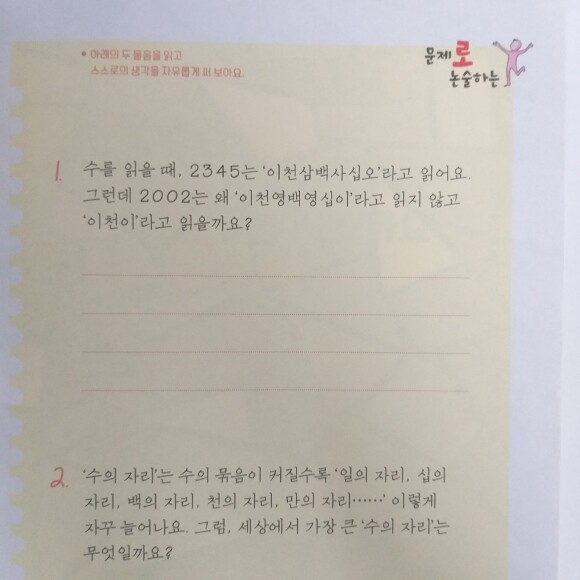 • 아래의 두 물음을 읽고
스스로의 생각을 자유롭게 써 보아요.
문제로
논술하는
1. 수를 읽을 때, 2345는 ‘이천삼백사십오’라고 읽어요.
그런데 2002는 왜 ‘이천영백영십이’라고 읽지 않고
‘이천이’라고 읽을까요?
2. ‘수의 자리’는 수의 묶음이 커질수록 ‘일의 자리, 십의
자리, 백의 자리, 천의 자리, 만의 자리……’ 이렇게
자꾸 늘어나요. 그럼, 세상에서 가장 큰 ‘수의 자리’는
무엇일까요?